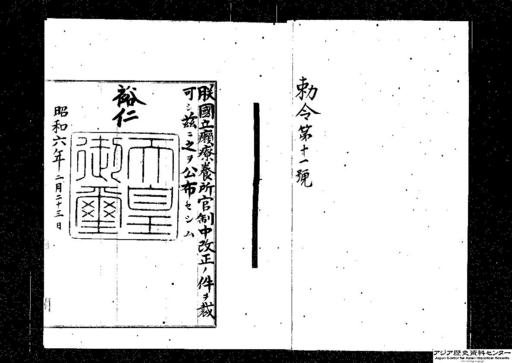 勅令第十一號
朕國立癩療養所官制中改正ノ件ヲ裁
可シ玆ニ之ヲ公布セシム
裕仁
天皇
御璽
昭和六年二月二十三日
アジア歴史資料センター
Japan Center for Asian Historical Records